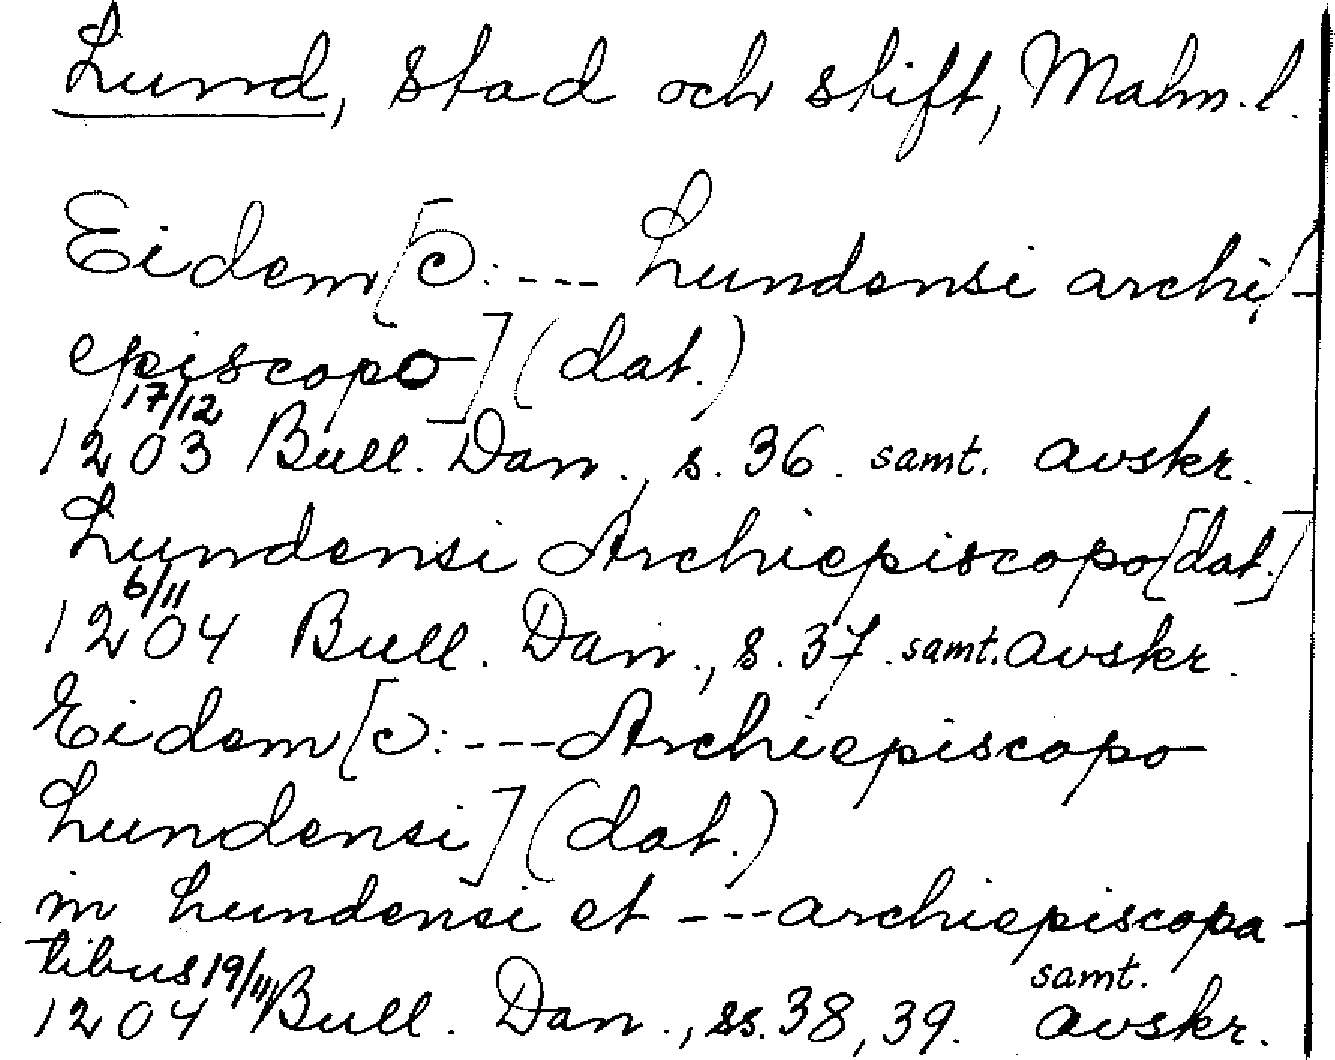 Lund, stad och stift, Malm. l.
Eidem [ɔ: --- Lundensi archi/-
episcopo] (dat.)
17/12
1203 Bull. Dan., s. 36. samt. avskr.
Lundensi Archiepiscopo [dat.]
6/11
1204 Bull. Dan., s. 37. samt. avskr.
Eidem [ɔ: --- Archiepiscopo
Lundensi] (dat.)
in Lundensi et --- archiepiscopa-
tibus 19/11 samt.
1204 Bull. Dan., ss. 38, 39. avskr.